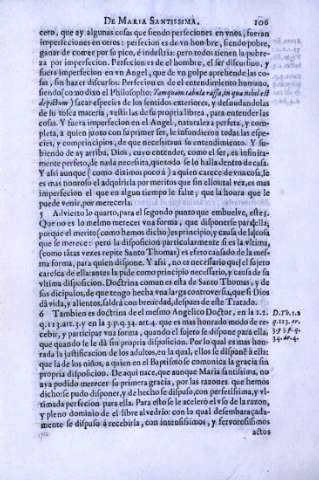 DE MARIA SANTISSIMA. 106
cero, que ay algunas cosas que siendo perfeciones en vnos, fueran
imperfeciones en otros: perfecion es de vn hombre, siendo pobre,
ganar de comer por su pico, è industria: pero todos tienen la pobre-
za por imperfecion. Perfecion es de el hombre, el ser discursiuo, y
fuera imperfecion en vn Angel, que de vn golpe aprehende las co-
sas, sin hazer discursos. Perfecion es de el entendimiento humano,
siendo (como dixo el Philosopho: Tamquam tabula rassa, in qua nihil est
depictum) sacar especies de los sentidos exteriores, y desnudandolas
de su tosca materia, vestirlas de su propria librea, para entenderlas
cosas. Y fuera imperfecion en el Angel, naturaleza perfeta, y com-
pleta, a quien junto con su primer ser, le infundieron todas las espe-
cies, y comprincipios, de que necessitaua su entendimiento. Y su-
biendo de ay arriba, Dios, cuyo entender, como el ser, es infinita-
mente perfeto, de nada necesita, que todo se lo halla dentro de casa.
Y assi aunque (como diximos poco à) a quien carece de vna cosa, le
es mas honroso el adquirirla por meritos que sin ellos: tal vez, es mas
imperfecion el que en algun tiempo le falte; que la honra que le
puede venir, por merecerla.
5 Aduierto lo quarto, para el segundo punto que embuelve, este:
Que no es lo mesmo merecer vna forma, que disponerse para ella;
porque el merito (como hemos dicho) es principio, y causa de la cosa
que se merece: pero la disposicion particularmente si es la vltima,
(como tātas vezes repite Santo Thomas) es efeto causado de la mes-
ma forma, para quien dispone. Y assi, no es necessario que el sujeto
caresca de ella: antes la pide como principio necessario, y causa de su
vltima disposicion. Doctrina comun es esta de Santo Thomas, y de
sus dicipulos, de que tengo hecha vna larga controuersia, que si Dios
dà vida, y alientos, saldrà con breuedad, despues de este Tratado.
6 Tambien es doctrina de el mesmo Angelico Doctor, en la 1.2.
q. 113. art. 3. y en la 3. p. q. 34. art. 4. que es mas honrado modo de re-
cebir, y participar vna forma, quando el sujeto se dispone para ella,
que quando se le dà sin propria disposicion. Por lo qual es mas hon-
rada la justificacion de los adultos, en la qual, ellos se disponē à ella:
que la de los niños, a quien en el Baptismo se comunica la gracia sin
propria disposicion. De aqui nace, que aunque Maria santissima, no
aya podido merecer su primera gracia, por las razones que hemos
dicho: se pudo disponer, y de hecho se dispuso, con perfetissima, y vl-
timada perfecion para ella. Para esto se le acelerò el vso de la razon,
y pleno dominio de el libre aluedrio: con lo qual desembaraçada-
mente se dispuso à recebirla, con intensissimos, y feruorosissimos
actos
D. Th. 1. 2
q. 113. ar.
3. & 3. p. q.
34. ar. 4.